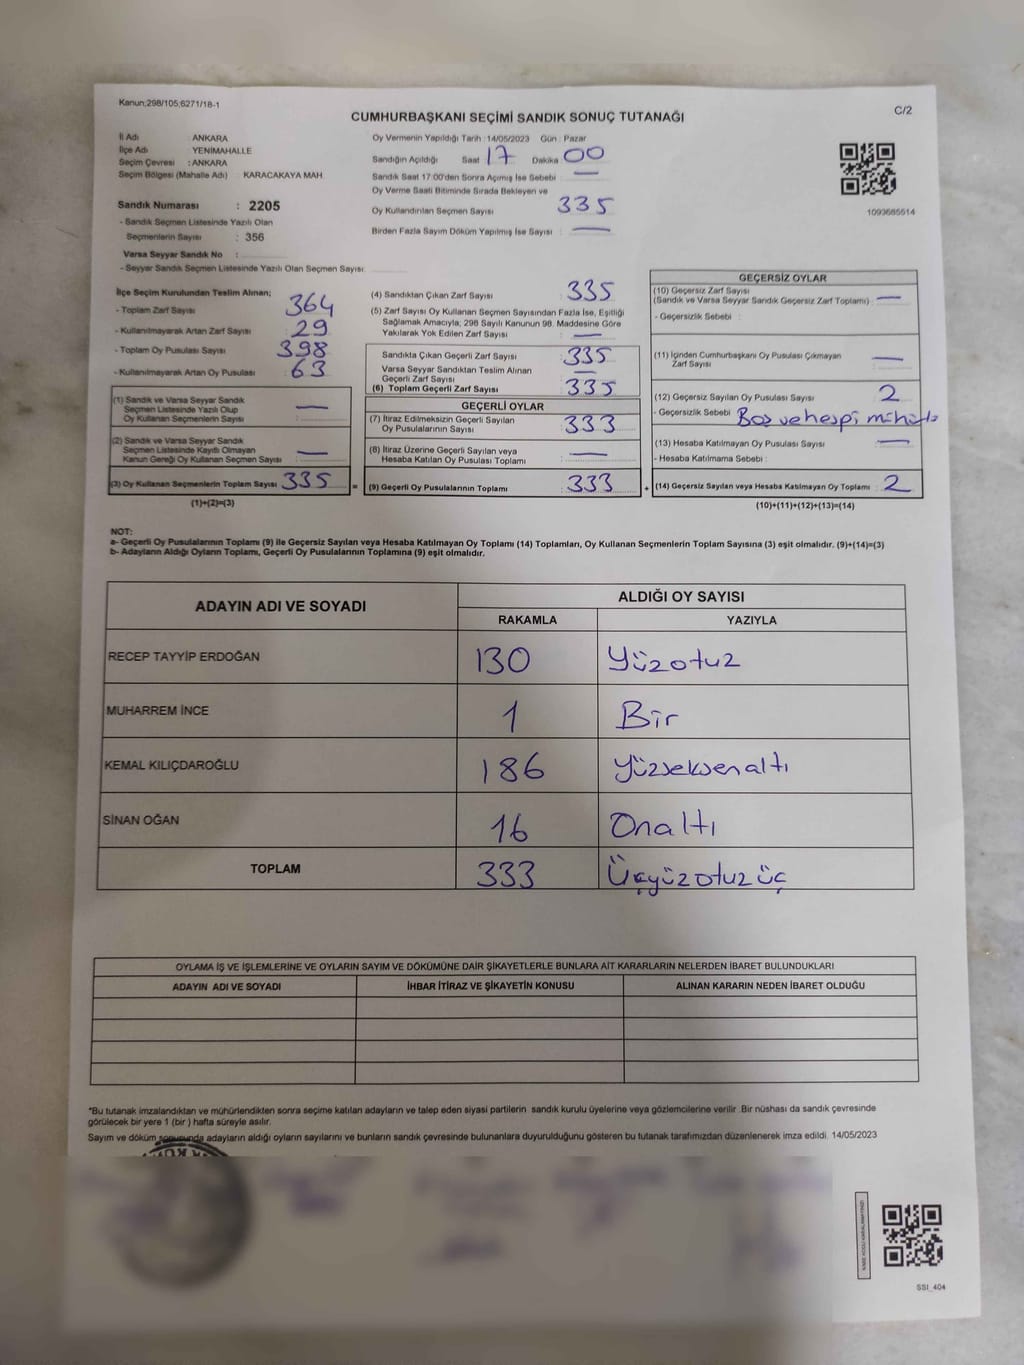 Kanun;298/105;6271/18-1
C/2
CUMHURBAŞKANI SEÇİMİ SANDIK SONUÇ TUTANAĞI
İl Adı : ANKARA
İlçe Adı : YENİMAHALLE
Seçim Çevresi : ANKARA
Seçim Bölgesi (Mahalle Adı) : KARACAKAYA MAH
Sandık Numarası : 2205
- Sandık Seçmen Listesinde Yazılı Olan
Seçmenlerin Sayısı : 356
Varsa Seyyar Sandık No :
- Seyyar Sandık Seçmen Listesinde Yazılı Olan Seçmen Sayısı :
Oy Vermenin Yapıldığı Tarih : 14/05/2023 Gün : Pazar
Sandığın Açıldığı Saat 17 Dakika 00
Sandık Saat 17:00'den Sonra Açımış İse Sebebi : —
Oy Verme Saati Bitiminde Sırada Bekleyen ve
Oy Kullandırılan Seçmen Sayısı : 335
Birden Fazla Sayım Döküm Yapılmış İse Sayısı : —
1093685514
İlçe Seçim Kurulundan Teslim Alınan;
- Toplam Zarf Sayısı : 364
- Kullanılmayarak Artan Zarf Sayısı : 29
- Toplam Oy Pusulası Sayısı : 398
- Kullanılmayarak Artan Oy Pusulası : 63
(1) Sandık ve Varsa Seyyar Sandık
Seçmen Listesinde Yazılı Olup
Oy Kullanan Seçmenlerin Sayısı : —
(2) Sandık ve Varsa Seyyar Sandık
Seçmen Listesinde Kayıtlı Olmayan
Kanun Gereği Oy Kullanan Seçmen Sayısı : —
(3) Oy Kullanan Seçmenlerin Toplam Sayısı : 335
(1)+(2)=(3)
(4) Sandıktan Çıkan Zarf Sayısı : 335
(5) Zarf Sayısı Oy Kullanan Seçmen Sayısından Fazla İse, Eşitliği
Sağlamak Amacıyla; 298 Sayılı Kanunun 98. Maddesine Göre
Yakılarak Yok Edilen Zarf Sayısı : —
Sandıkta Çıkan Geçerli Zarf Sayısı : 335
Varsa Seyyar Sandıktan Teslim Alınan
Geçerli Zarf Sayısı : —
(6) Toplam Geçerli Zarf Sayısı : 335
GEÇERLİ OYLAR
(7) İtiraz Edilmeksizin Geçerli Sayılan
Oy Pusulalarının Sayısı : 333
(8) İtiraz Üzerine Geçerli Sayılan veya
Hesaba Katılan Oy Pusulası Toplamı : —
= (9) Geçerli Oy Pusulalarının Toplamı : 333 +
GEÇERSİZ OYLAR
(10) Geçersiz Zarf Sayısı
(Sandık ve Varsa Seyyar Sandık Geçersiz Zarf Toplamı) : —
- Geçersizlik Sebebi :
(11) İçinden Cumhurbaşkanı Oy Pusulası Çıkmayan
Zarf Sayısı : —
(12) Geçersiz Sayılan Oy Pusulası Sayısı : 2
- Geçersizlik Sebebi : Boş ve hespi
(13) Hesaba Katılmayan Oy Pusulası Sayısı : —
- Hesaba Katılmama Sebebi :
(14) Geçersiz Sayılan veya Hesaba Katılmayan Oy Toplamı : 2
(10)+(11)+(12)+(13)=(14)
NOT:
a- Geçerli Oy Pusulalarının Toplamı (9) ile Geçersiz Sayılan veya Hesaba Katılmayan Oy Toplamı (14) Toplamları, Oy Kullanan Seçmenlerin Toplam Sayısına (3) eşit olmalıdır. (9)+(14)=(3)
b- Adayların Aldığı Oyların Toplamı, Geçerli Oy Pusulalarının Toplamına (9) eşit olmalıdır.
ADAYIN ADI VE SOYADI
ALDIĞI OY SAYISI
RAKAMLA YAZIYLA
RECEP TAYYİP ERDOĞAN 130 Yüzotuz
MUHARREM İNCE 1 Bir
KEMAL KILIÇDAROĞLU 186 Yüzseksenaltı
SİNAN OĞAN 16 Onaltı
TOPLAM 333 Üçyüzotuzüç
OYLAMA İŞ VE İŞLEMLERİNE VE OYLARIN SAYIM VE DÖKÜMÜNE DAİR ŞİKAYETLERLE BUNLARA AİT KARARLARIN NELERDEN İBARET BULUNDUKLARI
ADAYIN ADI VE SOYADI İHBAR İTİRAZ VE ŞİKAYETİN KONUSU ALINAN KARARIN NEDEN İBARET OLDUĞU
*Bu tutanak imzalandıktan ve mühürlendikten sonra seçime katılan adayların ve talep eden siyasi partilerin sandık kurulu üyelerine veya gözlemcilerine verilir .Bir nüshası da sandık çevresinde
görülecek bir yere 1 (bir ) hafta süreyle asılır.
Sayım ve döküm sonucunda adayların aldığı oyların sayılarını ve bunların sandık çevresinde bulunanlara duyurulduğunu gösteren bu tutanak tarafımızdan düzenlenerek imza edildi. 14/05/2023
SSI_404